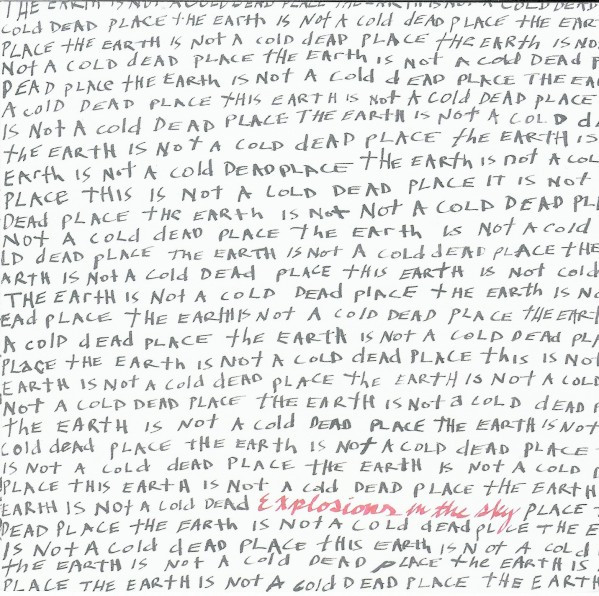 THE EARTH IS NOT A COLD DEAD PLACE THE EARTH IS NOT A COLD DEAD
COLD DEAD PLACE THE EARTH IS NOT A COLD DEAD PLACE THE EAR
PLACE THE EARTH IS NOT A COLD dEAD PLACE THE EARTH IS NO
NOT A COLD dEAD PLACE THE EARTH IS NOT A COLD DEAD P
DEAD PLACE THE EARTH IS NOT A COLD dEAD PLACE THE EA
A COLD DEAD PLACE THIS EARTH IS NOT A COLD DEAD PLACE
IS NOT A COLD DEAD PLACE THE EARTH IS NOT A COLD d
THE EARTH IS NOT A COLD dEAD PLACE THE EARTH IS
EARTH IS NOT A COLD DEAD PLACE THE EARTH IS NOT A COL
PLACE THIS IS NOT A COLD DEAD PLACE IT IS NOT
DEAD PLACE THE EARTH IS NOT NOT A COLD DEAD PL
NOT A COLD dEAD PLACE THE EARTH IS NOT A COLD
LD dEAD PLACE THE EARTH IS NOT A COLD dEAD PLACE THE
ARTH IS NOT A COLD DEAD PLACE THIS EARTH IS NOT COLD
THE EARTH IS NOT A COLD DEAD PLACE THE EARTH IS N
EAD PLACE THE EARTH IS NOT A COLD DEAD PLACE THE EART
A COLD dEAD PLACE THE EARTH IS NOT A COLD DEAD PL
PLACE THE EARTH IS NOT A COLD dEAD PLACE this IS NO
EARTH IS NOT A COLD dEAD PLACE THE EARTH IS NOT A COLD
NOT A COLD DEAD PLACE THE EARTH IS NOT a COLD dEAD
THE EARTH IS NOT A COLD DEAD PLACE THE EARTH IS NOT
COLD dEAD PLACE THE EARTH IS NOT A COLD dEAD PLACE
IS NOT A COLD dEAD PLACE THE EARTH IS NOT A COLD
PLACE THIS EARTH IS NOT A COLD DEAD PLACE THE EARTH
EARTH IS NOT A COLD DEAD Explosions in the sky PLACE
DEAD PLACE THE EARTH IS NOT A COLD dEAD PLACE THE E
IS NOT A COLD dEAD PLACE THIS EARTH IS NOT A COLD
THE EARTH IS NOT A COLD DEAD PLACE THE EARTH IS
PLACE THE EARTH IS NOT A COLD DEAD PLACE THE EARTH